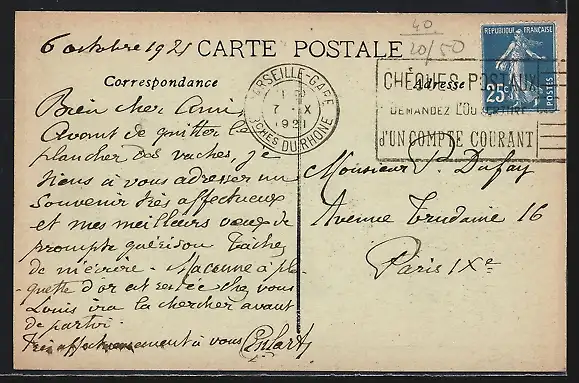 6 octobre 1921
CARTE POSTALE
40
20/50
REPUBLIQUE FRANÇAISE
25c
Correspondance
Adresse
MARSEILLE-GARE
7 - X
1921
BCHES DU RHONE
CHÈQUES POSTAUX
DEMANDEZ L'OUVERTURE
d'UN COMPTE COURANT
Bien cher Ami
Avant de quitter le
plancher des vaches, je
tiens à vous adresser un
souvenir très affectueux
et mes meilleurs vœux de
prompte guérison Tachez
de m'écrire - Ma canne à
quette d'or est restée chez vous
Louis ira la chercher avant
de partir
Très affectueusement à vous
Monsieur P. Dufay
Avenue Trudaine 16
Paris IXe